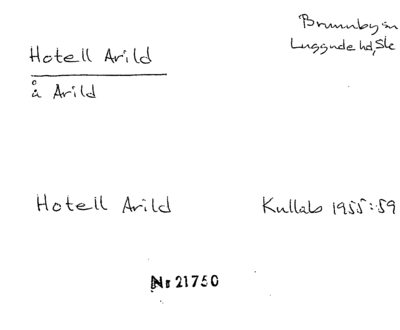 Brunnby sn
Luggude hd, Sk
Hotell Arild
å Arild
Hotell Arild Kullab 1955:59
Nr 21750